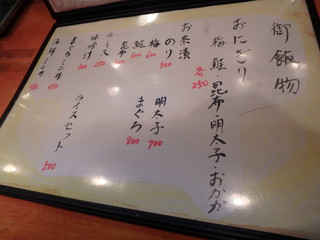 御飯物
おにぎり
梅・鮭・昆布・明太子・おかか
各250
お茶漬
のり 500
梅 600
鮭 600
昆布 600
明太子 700
まぐろ 800
ライス 250
味噌汁 200
ライスセット 500